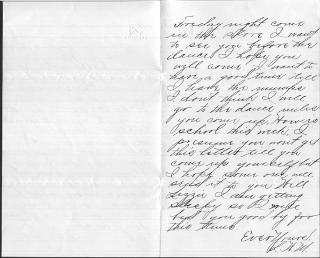 Friday night come
in the store I want
to see you before the
dance I hope you
will come I want to
have a good time till
I have the mumps
I dont think I will
go to the dance unless
you come up. How is
school this week, I
presume you wont get
this letter till you
come up yourself but
I hope some one will
send it to you Well
Lizzie I am getting
sleepy so I
bid you good by for
this time
Ever Yours